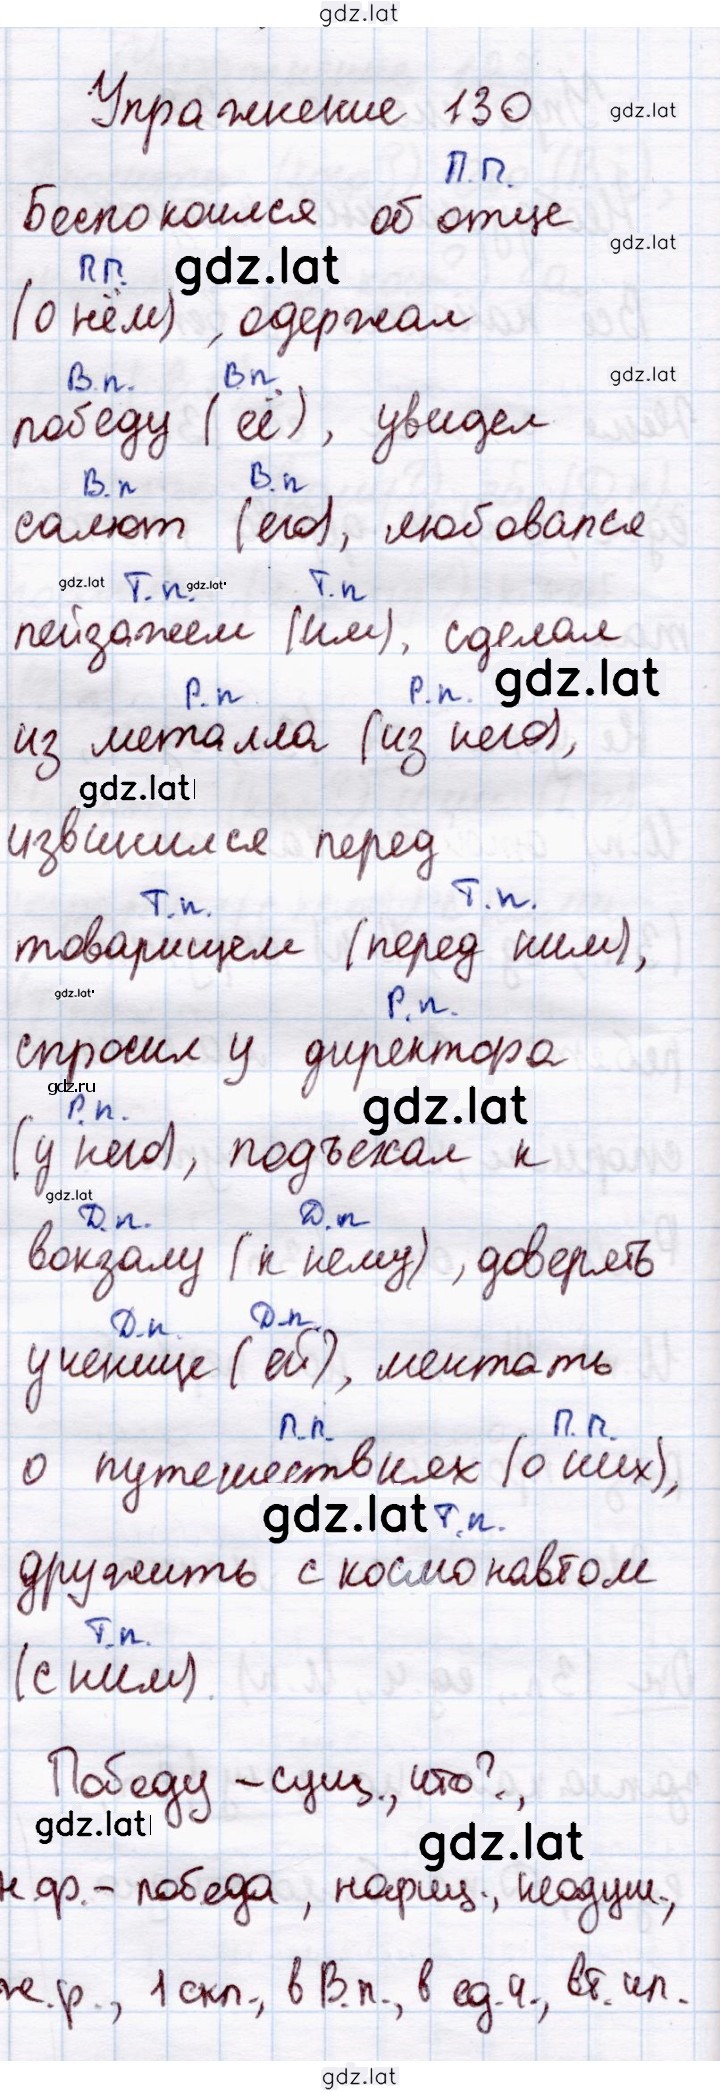 gdz.lat
Упражнение 130
gdz.lat
П.П.
Беспокоился об отце
gdz.lat
П.П.
gdz.lat
(о нём), одержал
gdz.lat
В.п. В.п.
победу (её), увидел
В.п В.п
салют (его), любовался
gdz.lat Т.п. gdz.lat Т.п
пейзажем (им), сделал
gdz.lat
Р.п. Р.п.
из металла (из него),
gdz.lat
извинился перед
Т.п. Т.п.
товарищем (перед ним),
gdz.lat Р.п.
спросил у директора
gdz.ru
Р.п. gdz.lat
(у него), подъехал к
gdz.lat
Д.п. Д.п
вокзалу (к нему), доверять
Д.п. Д.п.
ученице (ей), мечтать
П.п. П.п.
о путешествиях (о них),
gdz.lat Т.п.
дружить с космонавтом
Т.п.
(с ним).
Победу – сущ., что?.,
gdz.lat gdz.lat
н.ф. – победа, нариц., неодуш.,
ж.р., 1 скл., в В.п., в ед.ч., вт. чл.
gdz.lat